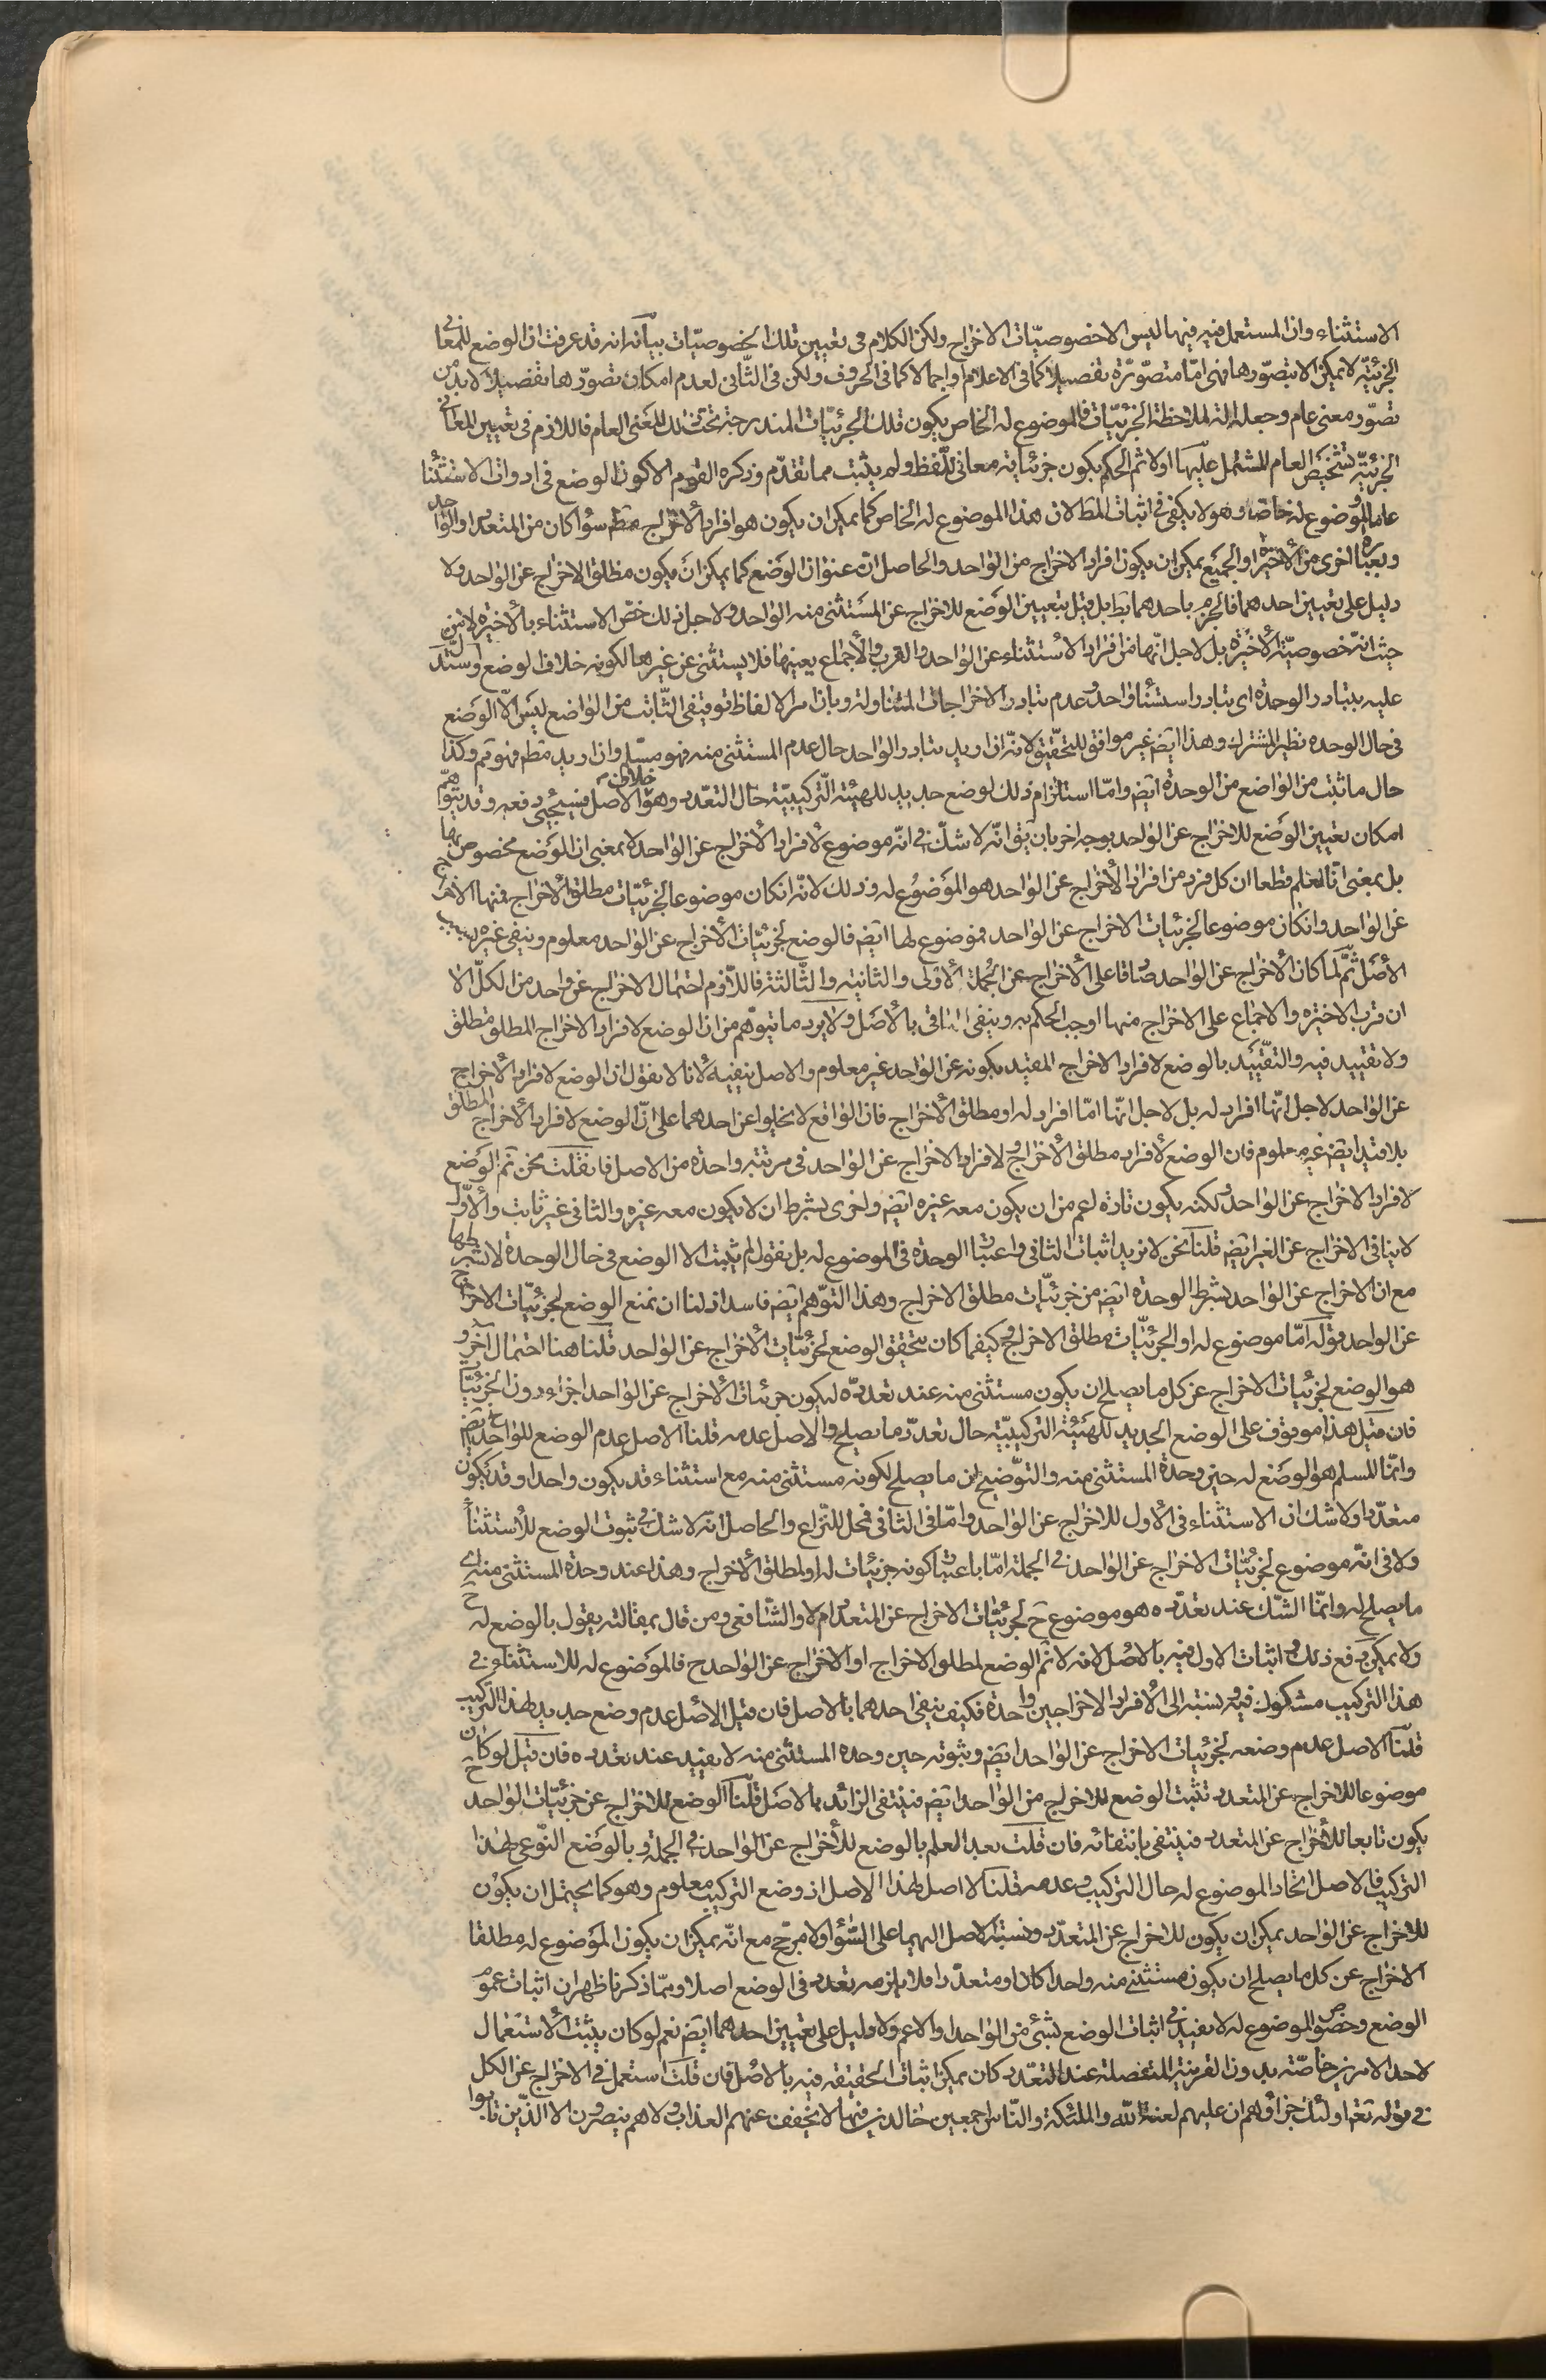 الاستثناء وان المستعمل فيه فيها ليس الا خصوصيّات الاخراج ولكن الكلام فى تعيين تلك الخصوصيّات بيانه انه قد عرفت ان الوضع للمعانى
الجزئيّة لا يمكن الا بتصوّرها فهى امّا متصوّرة تفصيلا كما فى الاعلام او اجمالا كما فى الحروف ولكن فى الثّانى لعدم امكان تصوّرها تفصيلا لا بدّ من
تصوّر معنى عام وجعله الة لملاحظة الجزئيّات فالموضوع له الخاص يكون تلك الجزئيّات المندرجة تحت ذلك المعنى العام فاللازم فى تعيين المعانى
الجزئيّة تشخيص العام المشتمل عليها اولا ثم الحكم بكون جزئياته معانى للّفظ ولم يثبت مما تقدّم وذكره القوم الا كون الوضع فى ادوات الاستثناء
عاما والموضوع له خاصّا وهو لا يكفى فى اثبات المط لان هذا الموضوع له الخاص كما يمكن ان يكون هو افراد الاخراج مط سواء كان من المتعدد او الواحد
وبعبارة اخرى من الأخيرة او الجميع يمكن ان يكون افراد الاخراج من الواحد والحاصل انّ عنوان الوضع كما يمكن ان يكون مطلق الاخراج عن الواحد ولا
دليل على تعيين احدهما فالجزم باحدهما بط بل قيل بتعيين الوضع للاخراج عن المستثنى منه الواحد ولاجل ذلك خصّ الاستثناء بالأخيرة لا من
حيث انّه خصوصيّة الأخيرة بل لاجل انّها من افراد الاستثناء عن الواحد والقرب والاجماع يعينها فلا يستثنى عن غيرها لكونه خلاف الوضع واستدل
عليه بتبادر الوحدة اى تبادر استثناء واحد وعدم تبادر الاخراجات المتناولة وبان امر الالفاظ توقيفى الثّابت من الواضع ليس الّا الوضع
فى حال الوحدة نظير المشترك وهذا ايض غير موافق للتحقيق لانّه ان اريد تبادر الواحد حال عدم المستثنى منه فهو مسلّم وان اريد مط فهو ثم وكذا
حال ما ثبت من الواضع من الوحدة ايض وامّا استلزام ذلك لوضع جديد للهيئة التّركيبيّة حال التعدّد وهو خلاف الاصل فسيجئ دفعه وقد يتوهّم
امكان تعيين الوضع للاخراج عن الواحد بوجه اخر بان يق انّه لا شكّ فى انّه موضوع لأفراد الأخراج عن الواحد لا بمعنى ان الوضع مخصوص بها
بل بمعنى انّا نعلم قطعا ان كل فرد من افراد الأخراج عن الواحد هو الموضوع له وذلك لانّه ان كان موضوعا لجزئيّات مطلق الأخراج فمنها الاخراج
عن الواحد وان كان موضوعا لجزئيات الاخراج عن الواحد فموضوع لها ايض فالوضع لجزئيّات الأخراج عن الواحد معلوم وينفى غيره بسبب
الأصل ثمّ لما كان الأخراج عن الواحد صادقا على الأخراج عن الجملة الأولى والثانية والثّالثة فاللّازم احتمال الاخراج عن واحد من الكلّ الا
ان قرب الاخيرة والاجماع على الاخراج منها اوجب الحكم به وينفى الباقى بالأصل ولا يرد ما يتوهّم من ان الوضع لافراد الاخراج المطلق مطلق
ولا تقييد فيه والتقييد بالوضع لافراد الاخراج المقيد بكونه عن الواحد غير معلوم والاصل ينفيه لأنا لا نقول ان الوضع لافراد الأخراج
عن الواحد لاجل انّها افراد له بل لاجل انّها امّا افراد له او مطلق الأخراج فان الواقع لا يخلوا عن احدهما على انّ الوضع لافراد الأخراج المطلق
بلا قيد ايض غير معلوم فان الوضع لأفراد مطلق الأخراج ولافراد الاخراج عن الواحد فى مرتبة واحدة من الاصل فان قلت نحن نم الوضع
لافراد الاخراج عن الواحد ولكنه يكون تارة اعم من ان يكون معه غيره ايض واخرى بشرط ان لا يكون معه غيره والثانى غير ثابت والأوّل
لا ينافى الاخراج عن الغير ايض قلنا نحن لا نريد اثبات الثانى واعتبار الوحدة فى الموضوع له بل نقول لم يثبت الا الوضع فى حال الوحدة لا بشرطها
مع ان الاخراج عن الواحد بشرط الوحدة ايض من جزئيّات مطلق الاخراج وهذا التوّهم ايض فاسد اذ لنا ان نمنع الوضع لجزئيّات الاخراج
عن الواحد قوله امّا موضوع له او الجزئيّات مطلق الاخراج وكيفما كان يتحقق الوضع لجزئيّات الأخراج عن الواحد قلنا هنا احتمال آخر و
هو الوضع لجزئيات الاخراج عن كل ما يصلح ان يكون مستثنى منه عند تعدّده ليكون جزئيات الأخراج عن الواحد اجزاء دون الجزئيّات
فان قيل هذا موقوف على الوضع الجديد للهيئة التركيبيّة حال تعدّد ما يصلح والاصل عدمه قلنا الاصل عدم الوضع للواحد ح ايض
وانّما المسلم هو الوضع له حين وحدة المستثنى منه والتوّضيح ان ما يصلح لكونه مستثنى منه مع استثناء قد يكون واحدا وقد يكون
متعدّدا ولا شك ان الاستثناء فى الأول للاخراج عن الواحد وامّا فى الثانى فمحل للنّزاع والحاصل انّه لا شك فى ثبوت الوضع للاستثناء
ولا فى انّه موضوع لجزئيّات الاخراج عن الواحد فى الجملة امّا باعتبار كونه جزئيات له او لمطلق الأخراج وهذا عند وحدة المستثنى منه اى
ما يصلح له وانّما الشّك عند تعدّده هو موضوع ح لجزئيّات الاخراج عن المتعدّد ام لا والشّافعى ومن قال بمقالته يقول بالوضع له ح
ولا يمكن دفع ذلك واثبات الاول فيه بالاصل لانه لا نم الوضع لمطلق الاخراج او الاخراج عن الواحد ح فالموضوع له للاستثناء فى
هذا التركيب مشكوك فيه ونسبته الى الأفراد الاخراجين واحدة فكيف ينفى احدهما بالاصل فان قيل الاصل عدم وضع جديد لهذا التركيب
قلنا الاصل عدم وضعه لجزئيات الاخراج عن الواحد ايض وثبوته حين وحدة المستثنى منه لا يفيد عند تعدده فان قيل لو كان ح
موضوعا للاخراج عن المتعدد تثبت الوضع للاخراج من الواحد ايض فينتفى الزائد بالاصل قلنا الوضع للاخراج عن جزئيّات الواحد
يكون تابعا للأخراج عن المتعدد فينتفى بانتفائه فان قلت بعد العلم بالوضع للأخراج عن الواحد فى الجملة وبالوضع النّوعى لهذا
التركيب فالاصل اتحاد الموضوع له حال التركيب وعدمه قلنا لا اصل لهذا الاصل اذ وضع التركيب معلوم وهو كما يحتمل ان يكون
للاخراج عن الواحد يمكن ان يكون للاخراج عن المتعدّد ونسبة الاصل اليهما على السّواء ولا مرجّح مع انّه يمكن ان يكون الموضوع له مطلقا
الاخراج عن كل ما يصلح ان يكون مستثنى منه واحدا كان او متعدّدا فلا يلزمه تعدد فى الوضع اصلا وممّا ذكرنا ظهر ان اثبات عموم
الوضع وخصوص الموضوع له لا يفيد فى اثبات الوضع لشئ من الواحد او الاعم ولا دليل على تعيين احدهما ايض نعم لو كان يثبت الاستعمال
لاحد الامرين خاصّة بدون القرينة المتفصلة عند التعدّد كان يمكن اثبات الحقيقة فيه بالاصل فان قلت استعمل فى الاخراج عن الكل
فى قوله تعه اولئك جزاؤهم ان عليهم لعنة الله والملئكة والنّاس اجمعين خالدين فيها لا يخفف عنهم العذاب ولا هم ينصرون الا الذّين تابوا